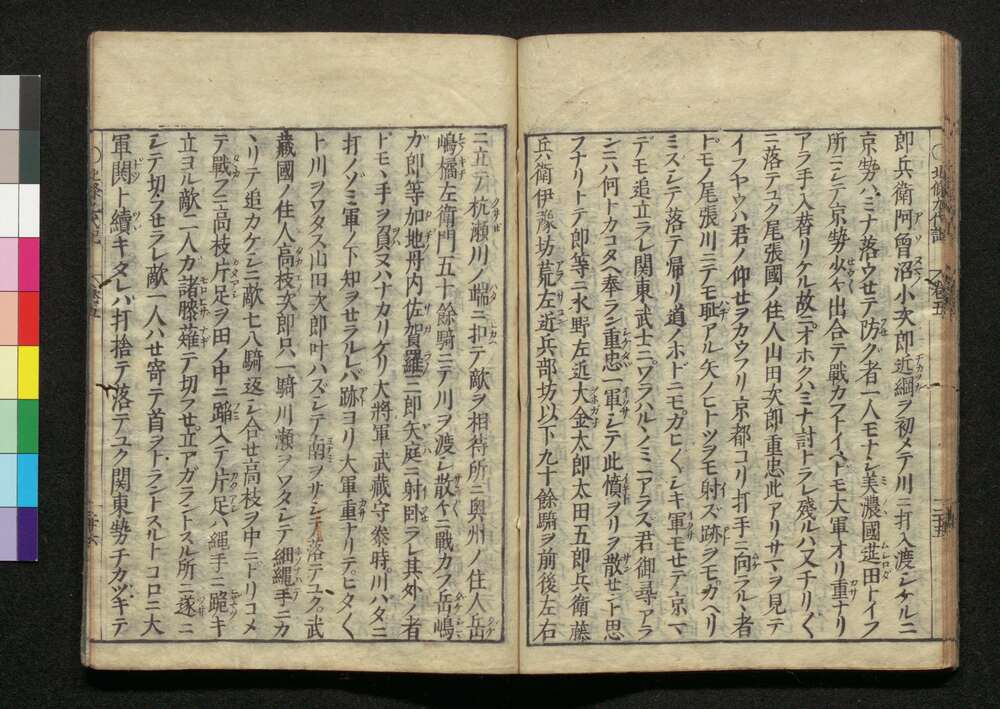 郎兵衛阿曾沼小次郎近綱ヲ初メテ川ニ打入渡シケルニ
京勢ハミナ落ウセテ防ク者一人モナシ美濃國莚田トイフ
所ニシテ京勢少々出合テ戰カフトイヘトモ大軍オリ重ナリ
アラ手入替リケル故ニオホクハミナ討トラレ殘ルハ又チリ〴〵
ニ落テユク尾張國ノ住人山田次郎重忠此アリサマヲ見テ
イフヤウハ君ノ仰セヲカウフリ京都ヨリ打手ニ向ラルヽ者
トモノ尾張川ニテモ耻アル矢ノヒトツヲモ射ズ跡ヲモカヘリ
ミズシテ落テ帰リ道ノホドニモカヒ〴〵シキ軍モセテ京マ
デモ追立ラレ関東武士ニワラハルノミニアラス君御尋アラ
ンニハ何トカコタヘ奉ラン重忠一軍シテ此憤ヲリヲ散セント思
フナリトテ郎等ニ水野左近大金太郎太田五郎兵衛藤
兵衛伊豫坊荒左近兵部坊以下九十餘騎ヲ前後左右
ニ立テ杭瀬川ノ端ニ扣テ敵ヲ相待所ニ奥州ノ住人岳
嶋橘左衛門五十餘騎ニテ川ヲ渡シ散々ニ戰カフ岳嶋
カ郎等加地丹内佐賀羅三郎矢庭ニ射臥ラレ其外ノ者
トモヽ手ヲ負又ハナカリケリ大將軍武藏守泰時川ハタニ
打ノゾミ軍ノ下知ヲセラルレバ跡ヨリ大軍重ナリテヒタ〳〵
ト川ヲワタス山田次郎叶ハズシテ南ヲサシテ落テユク武
藏國ノ住人高枝次郎只一騎川瀬ヲワタシテ細繩手ニカ
ヽリテ追カケシニ敵七八騎返シ合セ高枝ヲ中ニトリコメ
テ戰フニ高枝片足ヲ田ノ中ニ踏入テ片足ハ繩手ニ跪キ
立ヨル敵二人カ諸膝薙テ切フセ立アガラントスル所ニ遂ニ
シテ切フセラレ敵一人ハセ寄テ首ヲトラントスルトコロニ大
軍関ト續キタレハ打捨テ落テユク関東勢チカヅキテ